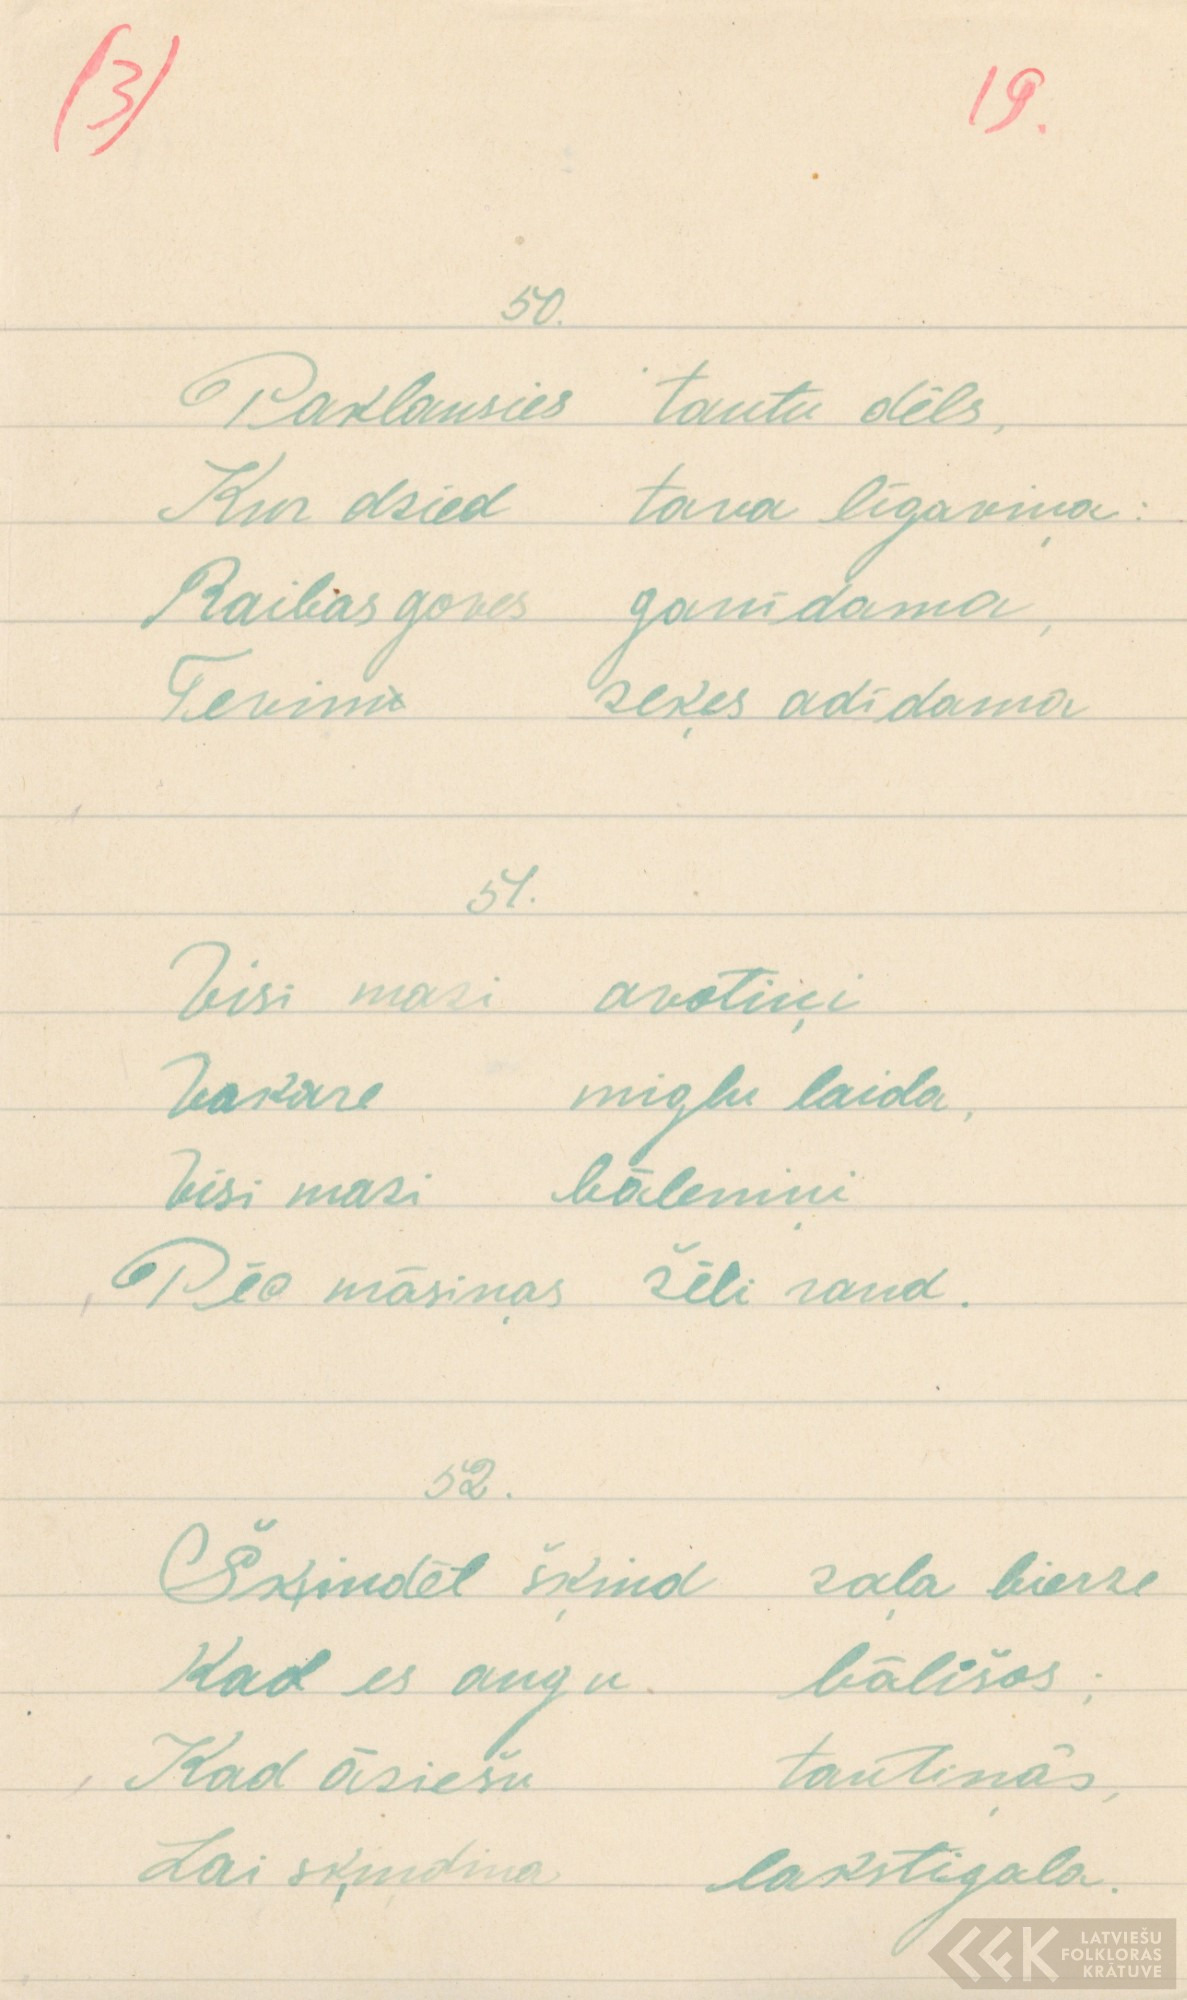 (3) 19.
50.
Paklausies tautu dēls,
Kur dzied tava līgaviņa:
Raibas govs ganīdama,
Tevim zeķes adīdama
51.
Visi mazi avotiņi
Vakare miglu laida,
Visi mazi bāleniņi
Pēc māsiņas žēli raud.
52.
Šķindēt šķind zaļa bierze
Kad es augu bālišos;
Kad āziešu tautiņās,
Lai skķindina lakstīgala.
LATVIEŠU
FOLKLORAS
KRĀTUVE